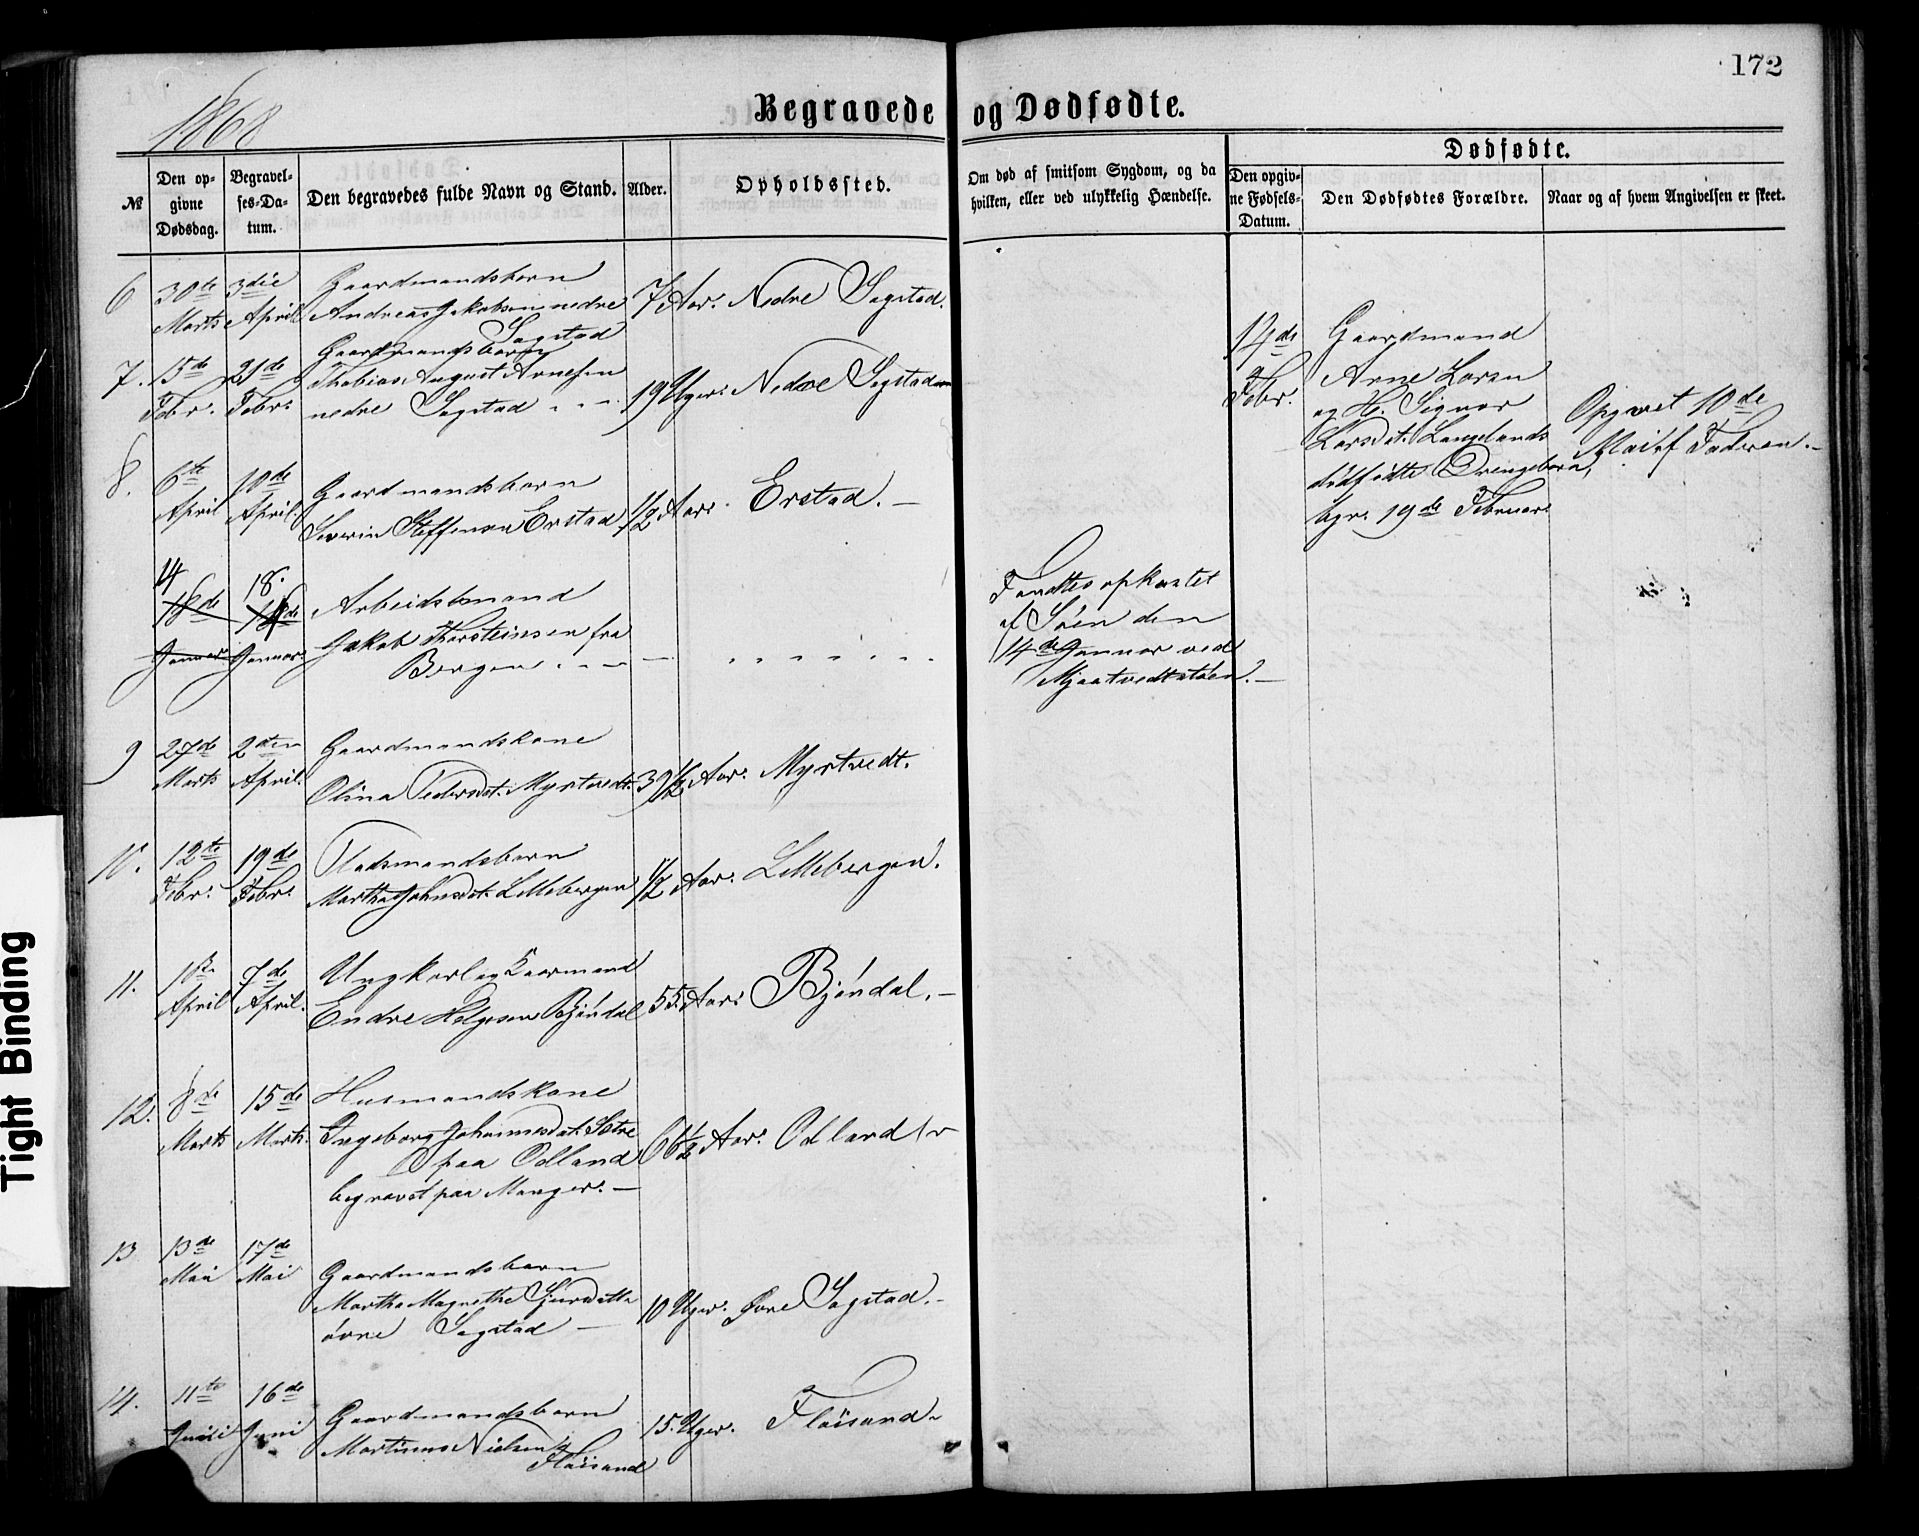 172
1868
Begravede og Dødfødte.
№
Den opgivne Dødsdag.
Begravelses-Datum.
Den begravedes fulde Navn og Stand.
Alder.
Opholdssted.
Om død af smitsom Sygdom, og da
hvilken, eller ved ulykkelig Hændelse.
Dødfødte.
Den opgivne Fødsels-Datum.
Den Dødfødtes Forældre.
Naar og af hvem Angivelsen er skeet.
6 30te Marts 3die April
Gaardmandsbarn
Andreas Jakobsen nedre
Sagstad
7/12 Aar. Nedre Sagstad.
7. 15de Febr. 21de Febr.
Gaardmandsbarn
Thobias August Arnesen
nedre Sagstad
19 Uger. Nedre Sagstad
14de
Febr.
Gaardmand
Arne Larsen
og H. Signor
Larsdt. Langelands
dødfødte Drengebarn,
bgr. 19de Februar.
Opgivet 10de
Mai af Faderen.
8. 6te April 10de April.
Gaardmandsbarn
Severin Steffensen Erstad
1/2 Aar. Erstad.
14 18de Januar
18. 18de Januar
Arbeidsmand
Jakob Thorsteinsen fra
Bergen
Fandtes opkastet
af Søen den
14de Januar ved
Mjaatvedtstøen.
9 27de Marts 2den April.
Gaardmandskone
Olina Pedersdt. Myrtvedt.
39 1/2 Aar. Myrtvedt.
10. 12te Febr. 19de Febr.
Pladsmandsbarn
Martha Johnsdt. Lillebergen
1/2 Aar. Lillebergen.
11. 1ste April 7de April.
Ungkarl og Kaarmand
Endre Helgesen Bjøndal
55 Aar. Bjøndal.
12. 8de Marts 15de Marts.
Husmandskone
Ingeborg Johannesdt. Sætre
paa Odland
begravet paa Manger.
66 1/2 Aar. Odland
13 13de Mai 17de Mai
Gaardmandsbarn
Martha Magrethe Sjursdatter
øvre Sagstad
10 Uger. Øvre Sagstad.
14. 11te Juni 16de Juni
Gaardmandsbarn
Martinus Nielsen
Fløisand
15 Uger. Fløisand
Tight Binding